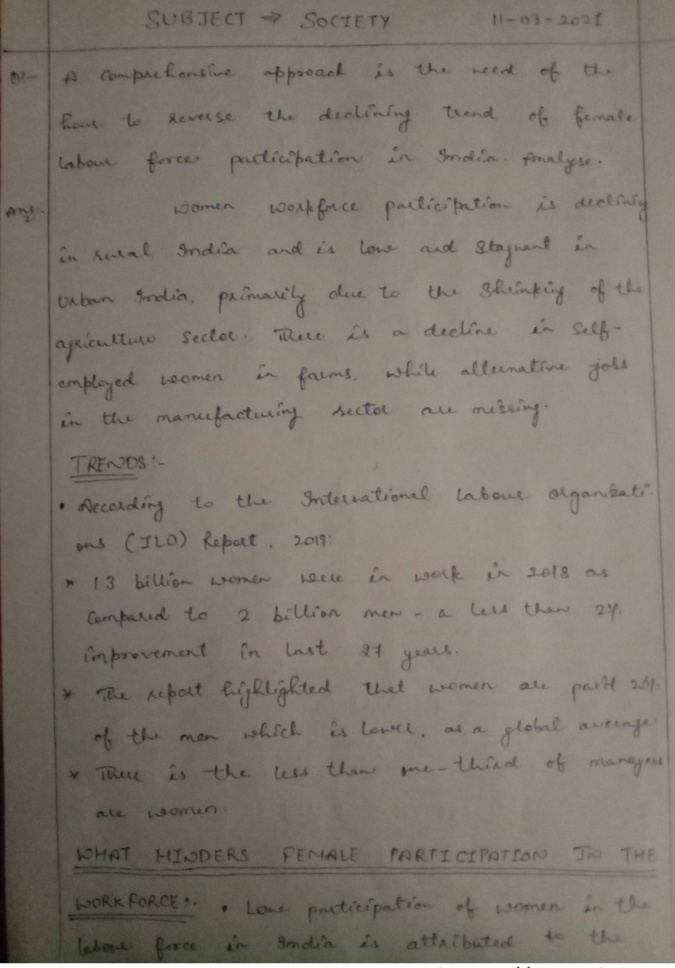 SUBJECT → SOCIETY 11-03-2021
Q1- A comprehensive approach is the need of the
hour to reverse the declining trend of female
labour force participation in India. Analyse.
Ans:- Women workforce participation is declining
in rural India and is low and stagnant in
Urban India, primarily due to the Shrinking of the
agriculture sector. There is a decline in self-
employed women in farms, while alternative jobs
in the manufacturing sector are missing.
TRENDS:-
• According to the International Labour organizati-
ons (ILO) Report, 2019:
* 1.3 billion women were in work in 2018 as
Compared to 2 billion men - a less than 2%
improvement in last 27 years.
* The report highlighted that women are paid 20%
of the men which is lower, as a global average
* There is the less than one-third of managers
are women.
WHAT HINDERS FEMALE PARTICIPATION IN THE
WORKFORCE:- • Low participation of women in the
labour force in India is attributed to the